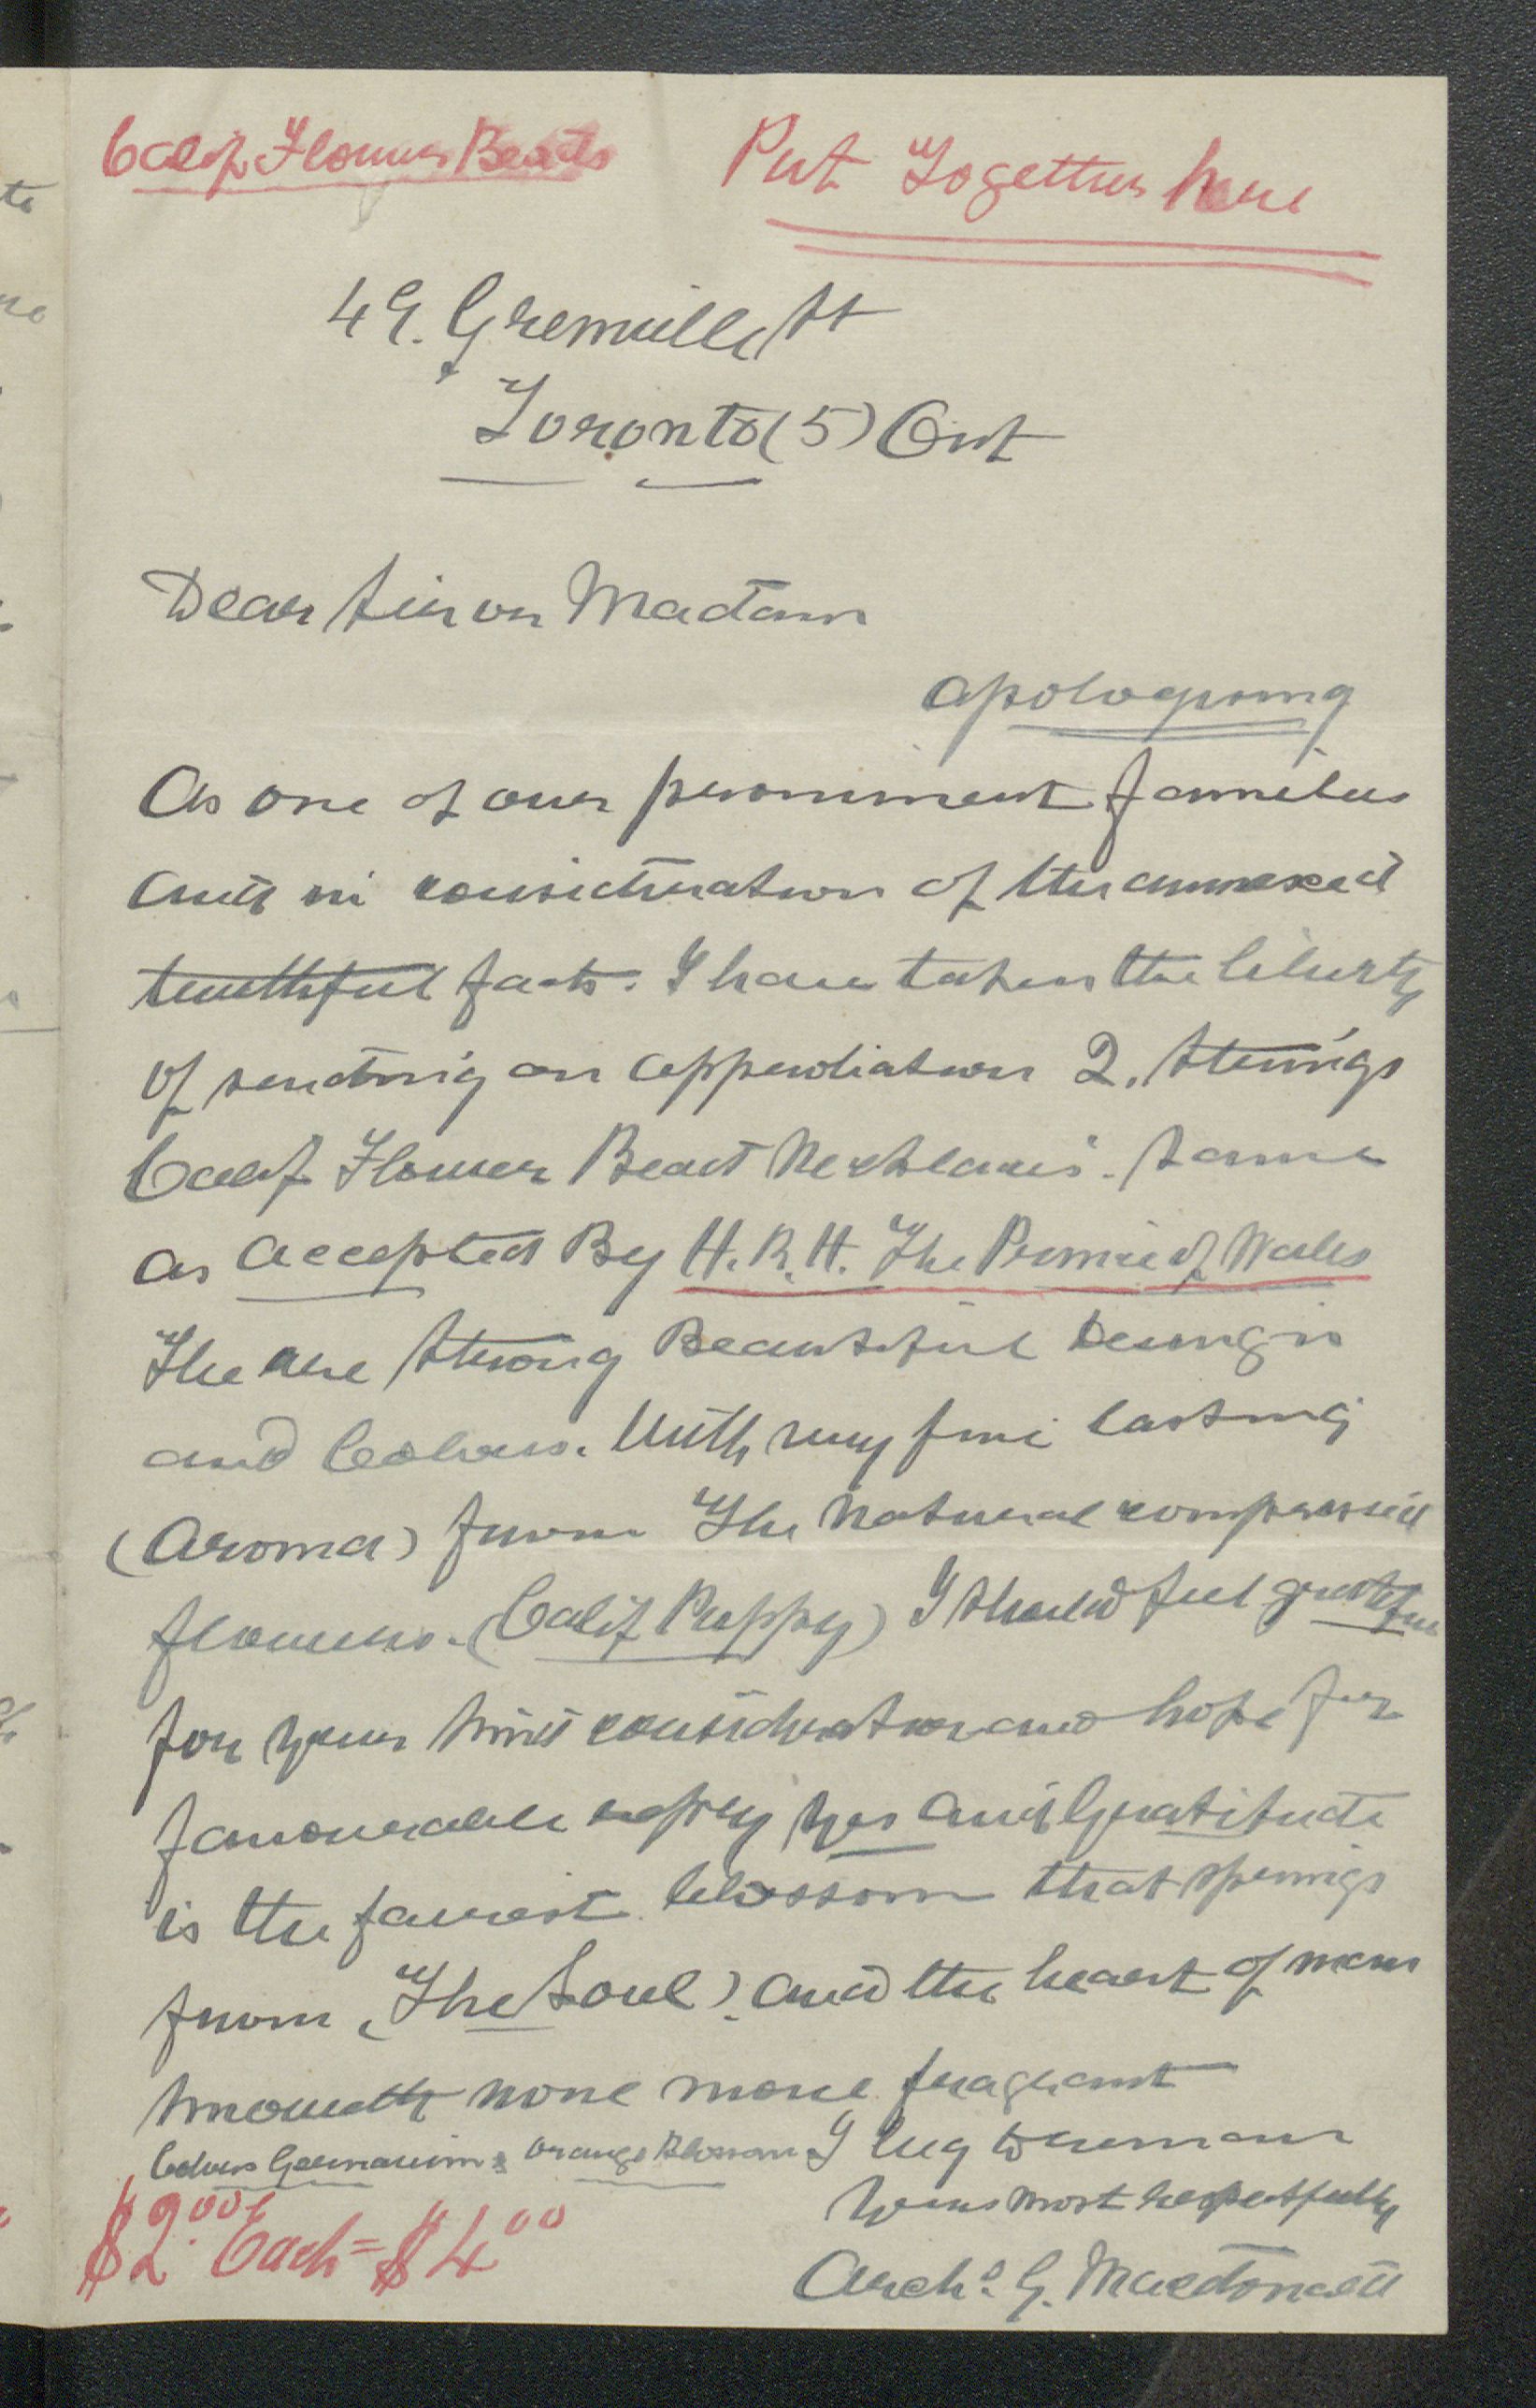 Calif Flower Beads
Put Together here
49. Grenville St
Toronto (5) Ont
Dear Sir or Madam
apologising
As one of our prominent families
and in consideration of the annexed
truthful facts. I have taken the liberty
of sending on approbation 2. Strings
Calif Flower Bead Necklaces. Same
as accepted By H.R.H. The Prince of Wales
The are Strong Beautiful Designs
and Colours. With very fine lasting
(Aroma) from The Natural compressed
flowers. (Calif Poppy) I should feel grateful
for your kind consideration and hope for
favourable reply yes and Gratitude
is the fairest blossom that springs
from (The Soul). and the heart of man
knoweth none more fragrant
Colours Geranium & Orange Blossom I beg to remain
Yours most respectfully
$2.00 Each = $4.00
Archd. G. Macdonell